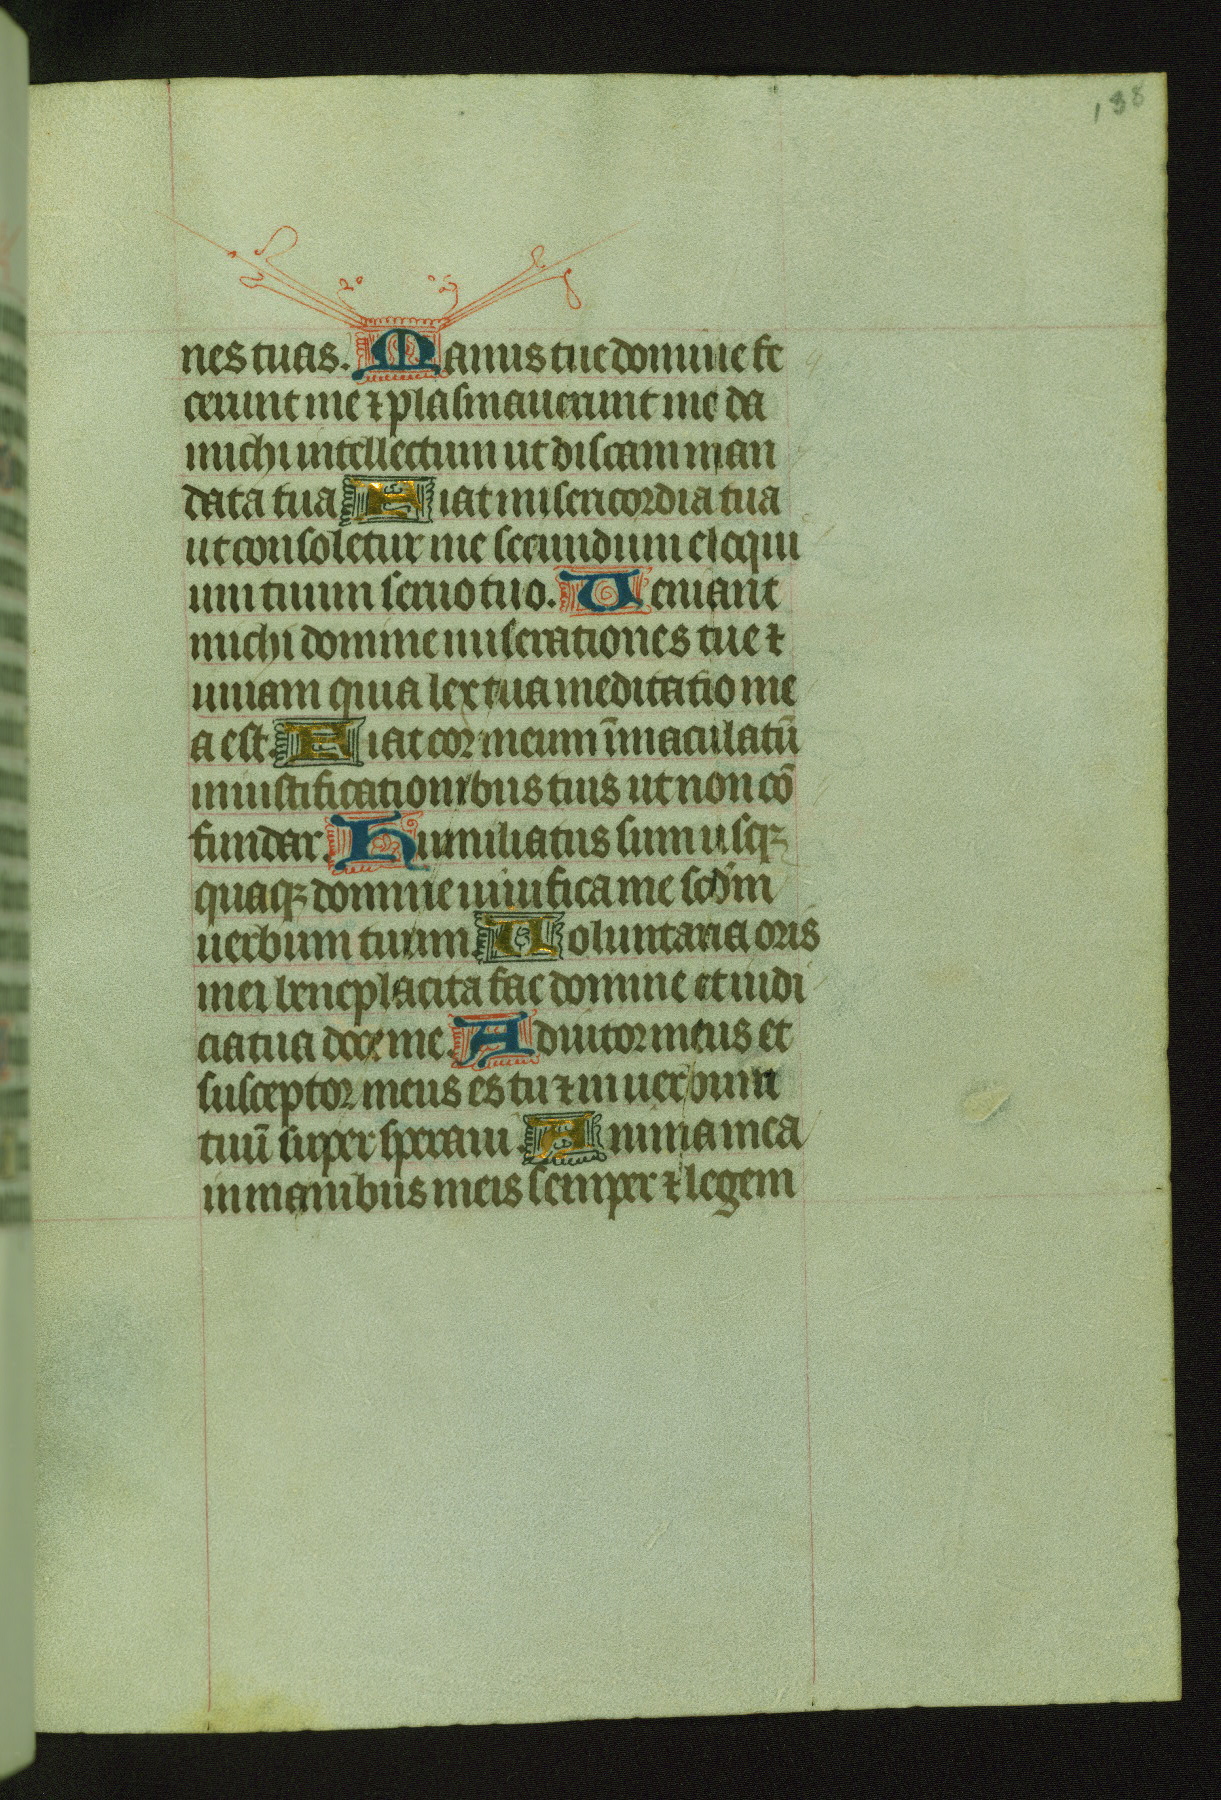 138
nes tuas. Manus tue domine fe
cerunt me ⁊ plasmauerunt me da
michi intellectum ut discam man
data tua Fiat misericordia tua
ut consoletur me secundum eloqui
um tuum seruo tuo. Ueniant
michi domine miserationes tue ⁊
uiuam quia lex tua meditatio me
a est. Fiat cor meum īmaculatū
in iustificationibus tuis ut non cō
fundar. Humiliatus sum usqꝫ
quaqꝫ domine uiuifica me scd̄m
uerbum tuum. Uoluntaria oris
mei beneplacita fac domine et iudi
cia tua doce me. Adiutor meus et
susceptor meus es tu ⁊ in uerbum
tuū super speraui. Anima mea
in manibus meis semper ⁊ legem